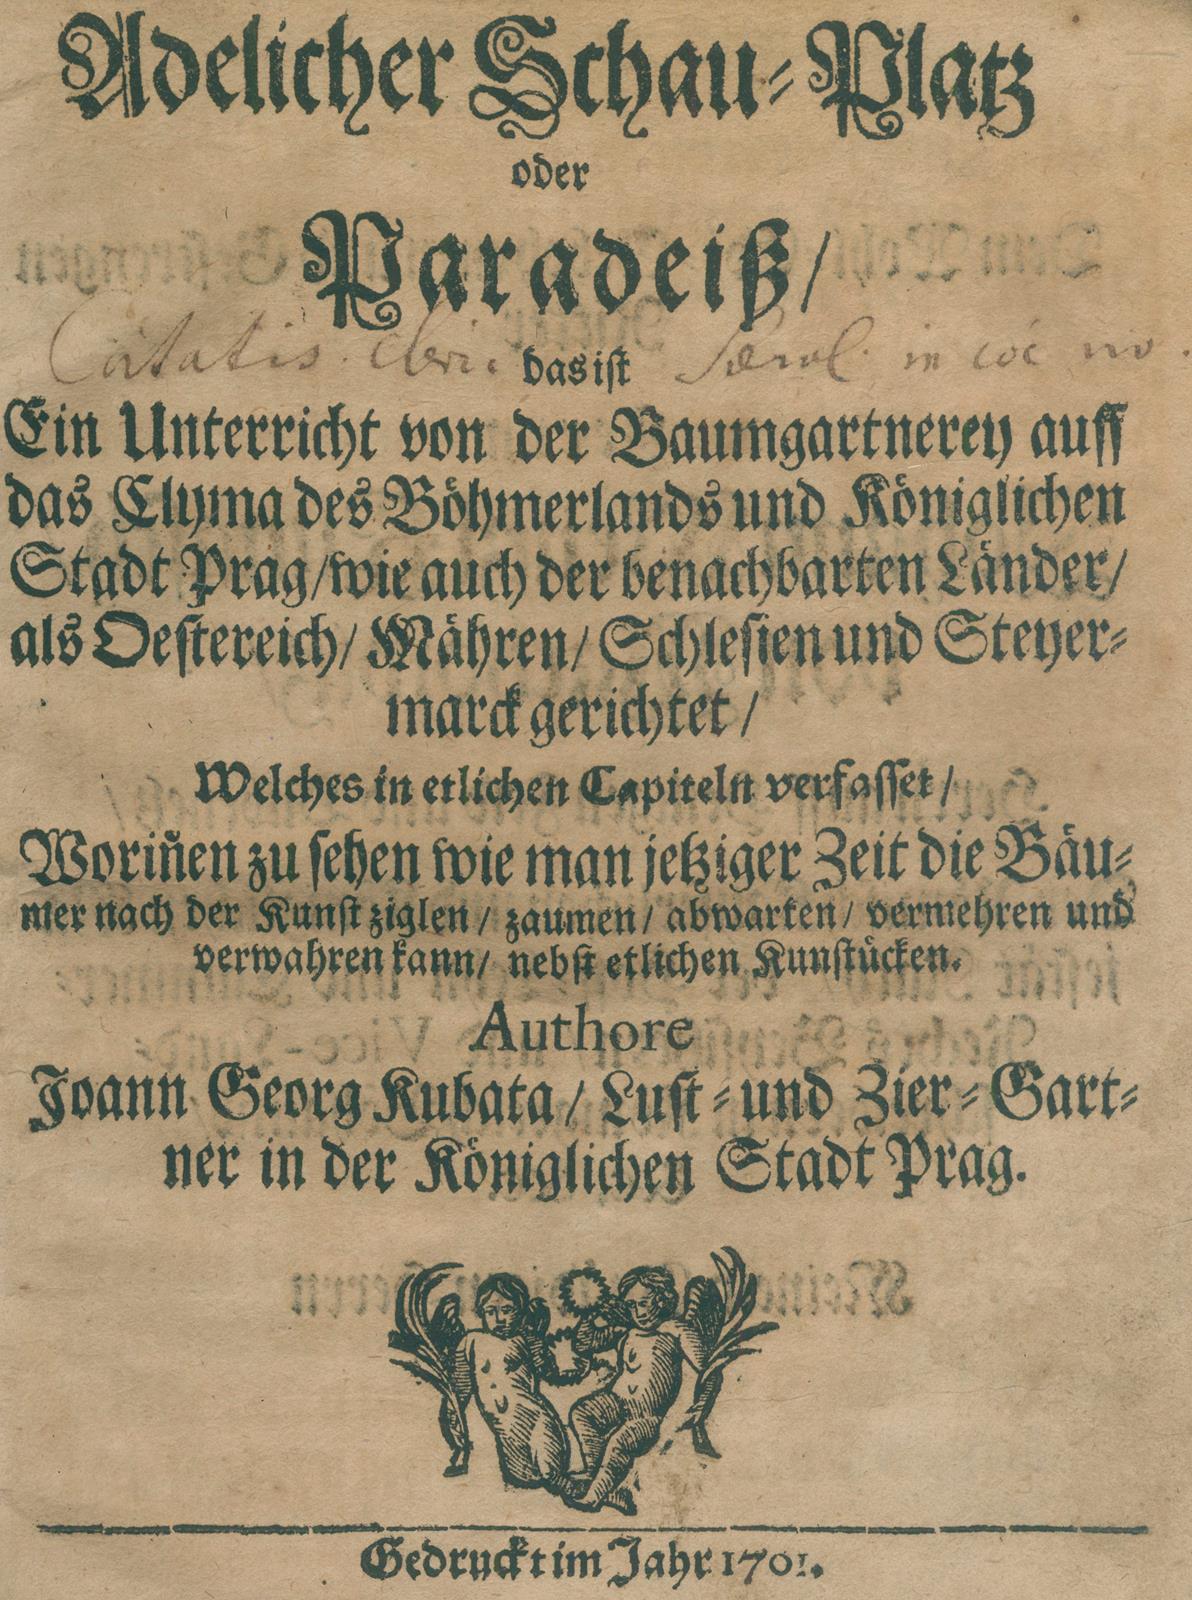 Adelicher Schau-Platz
oder
Paradeiß/
das ist
Ein Unterricht von der Baumgartnerey auff
das Clyma des Böhmerlands und Königlichen
Stadt Prag/ wie auch der benachbarten Länder/
als Oestereich/ Mähren/ Schlesien und Steyer-
marck gerichtet/
Welches in etlichen Capiteln verfasset/
Woriñen zu sehen wie man jetziger Zeit die Bäu-
mer nach der Kunst ziglen/ zaumen/ abwarten/ vermehren und
verwahren kann/ nebst etlichen Kunstücken.
Authore
Joann Georg Kubata/ Lust- und Zier-Gart-
ner in der Königlichen Stadt Prag.
Gedruckt im Jahr 1701.